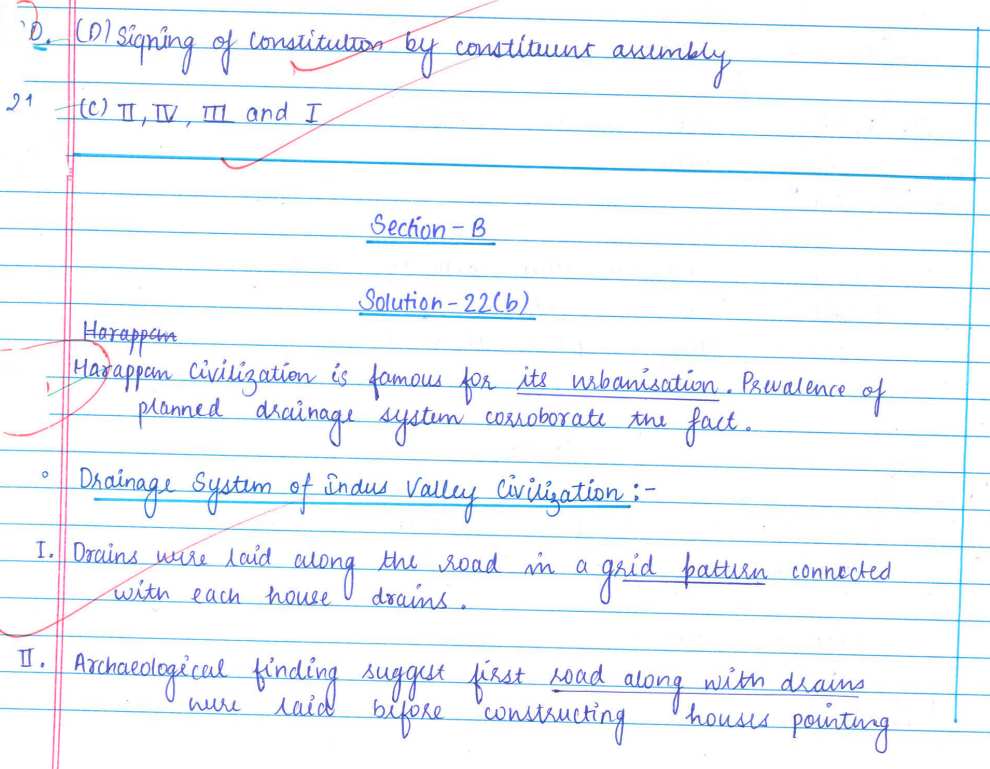 D. (D) Signing of constitution by constituent assembly
21 (C) II, IV, III and I
Section - B
Solution - 22(b)
Harappan
Harappan Civilization is famous for its urbanisation. Prevalence of
planned drainage system corroborate the fact.
Drainage System of Indus Valley Civilization :-
I. Drains were laid along the road in a grid pattern connected
with each house drains.
II. Archaeological finding suggest first road along with drains
were laid before constructing houses pointing